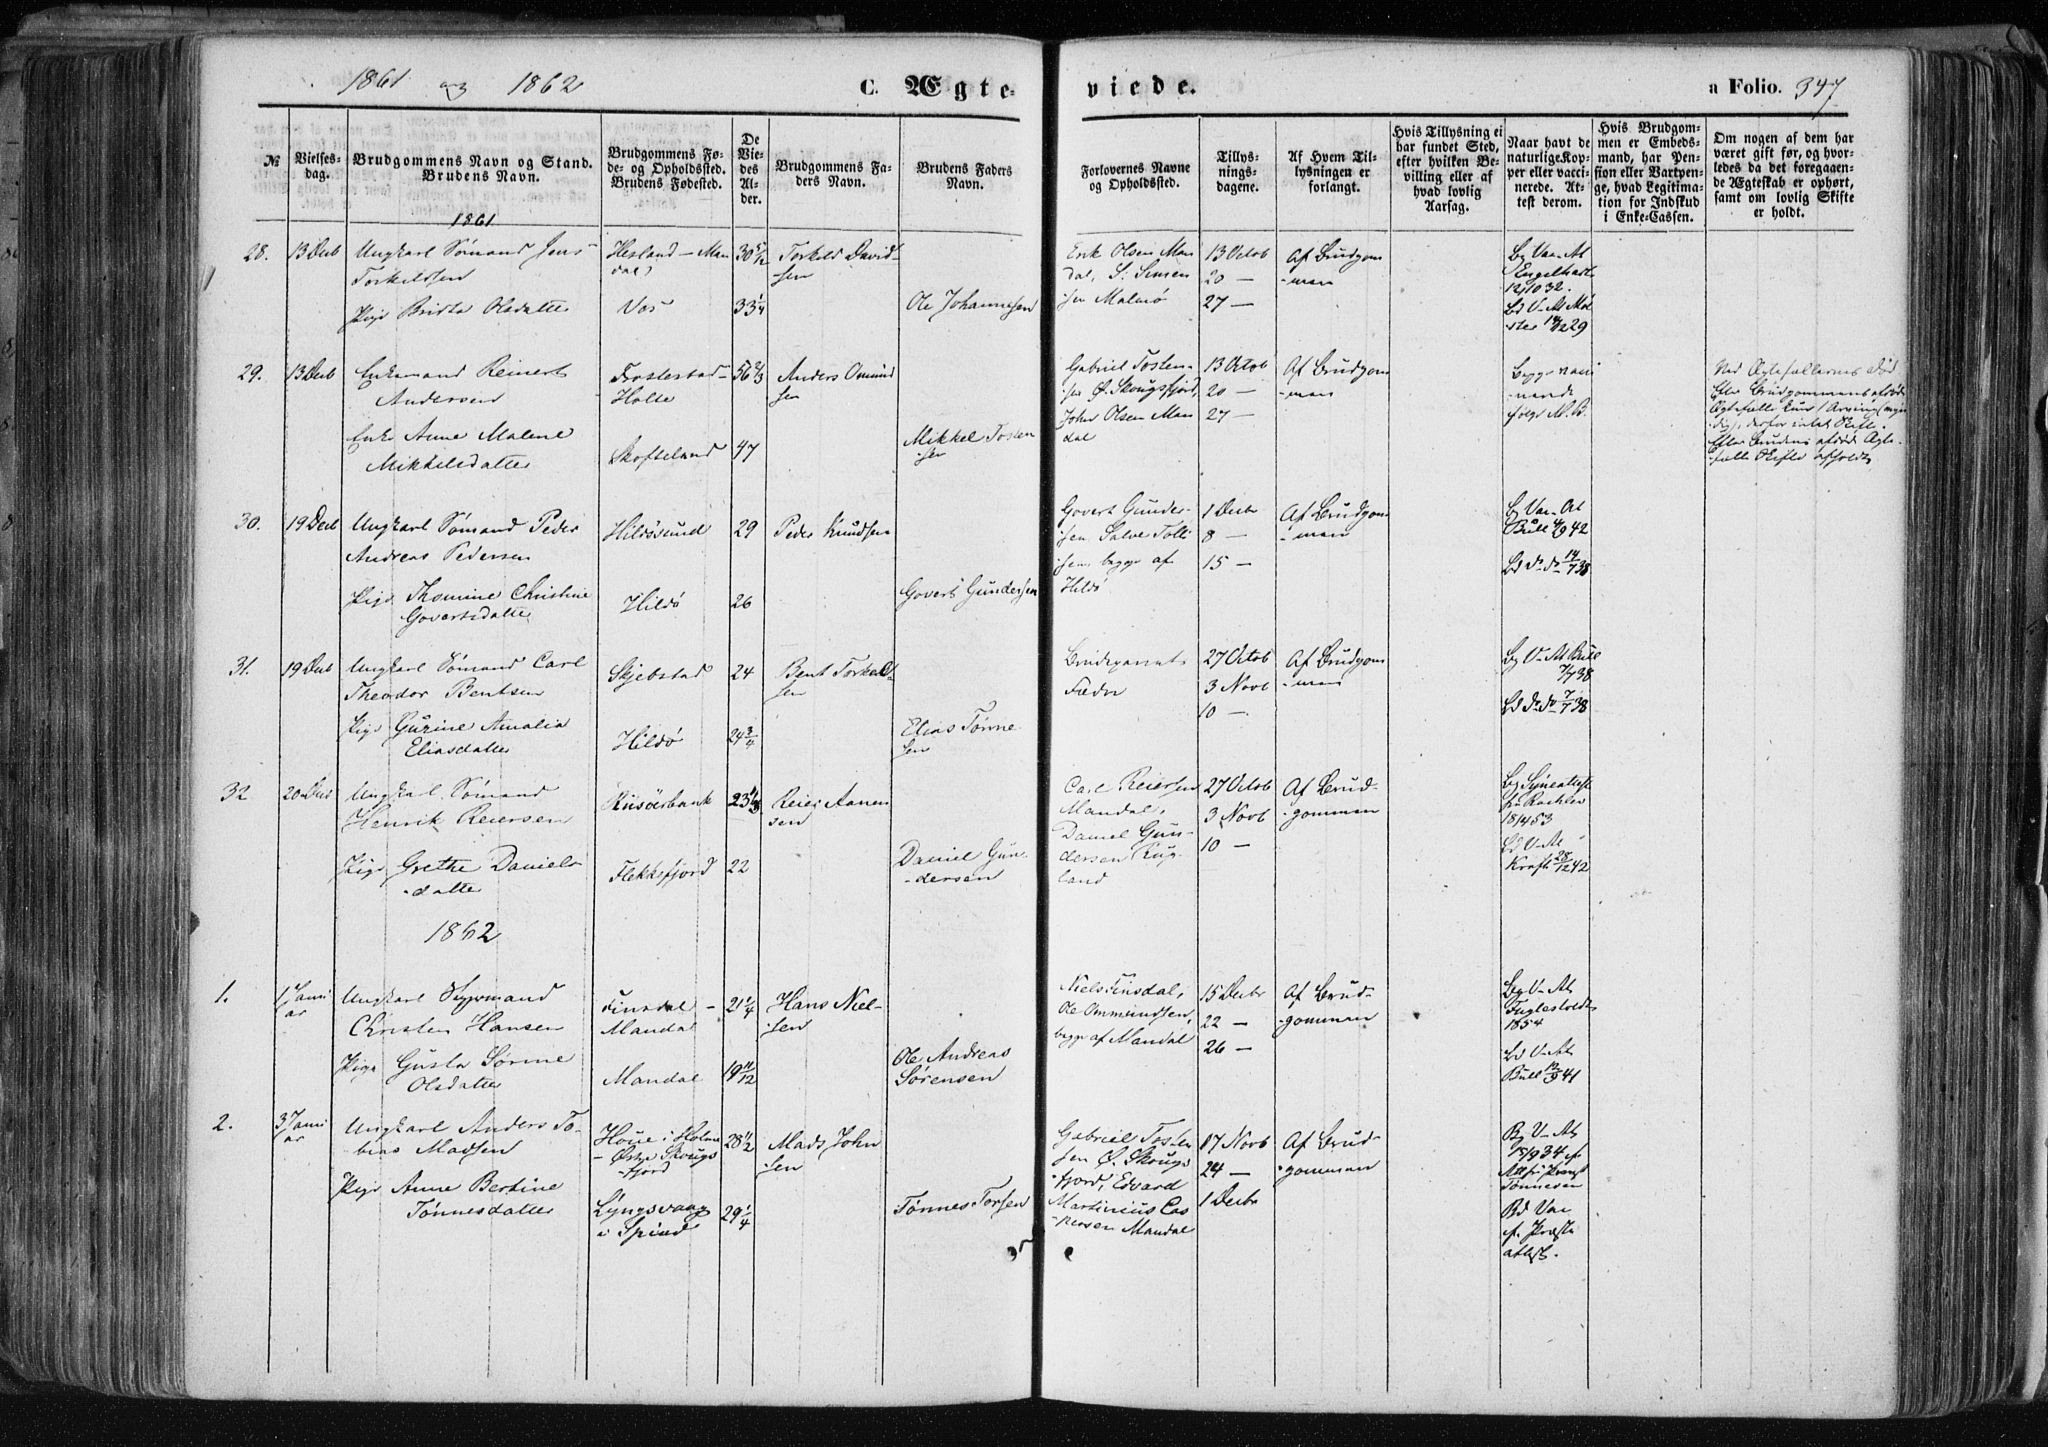 1861 og 1862
C. Ægteviede.
a Folio. 347
№
Vielsesdag.
Brudgommens Navn og Stand.
Brudens Navn.
Brudgommens Føde- og Opholdssted.
Brudens Fødested.
De Viedes Alder.
Brudgommens Faders Navn.
Brudens Faders Navn.
Forlovernes Navne og Opholdssted.
Tillysningsdagene.
Af Hvem Tillysningen er forlangt.
Hvis Tillysning ei har fundet Sted, efter hvilken Bevilling eller af hvad lovlig Aarsag.
Naar havt de naturlige Kopper eller vaccinerede. Attest derom.
Hvis Brudgommen er Embedsmand, har Pension eller Vartpenge, hvad Legitimation for Indskud i Enke-Cassen.
Om nogen af dem har været gift før, og hvorledes da det foregaaende Ægteskab er ophørt, samt om lovlig Skifte er holdt.
1861
28. 13 Decb Ungkarl Sømand Jens Torkelsen
Hesland - Mandal 30 5/12 Torkild Davidsen
Pige Brita Olsdatter Vos 33 1/4 Ole Johannesen
Erik Olsen Mandal, S. Simensen Malmø
13 Octob 20 — 27 —
Af Brudgommen
Bg Vac. At Engelhart 12/10 32.
Bd V. At Møster 14/12 29
29. 13 Decb Enkemand Reinert Andersen
Holte 56 2/3 Anders Omundsen
Enke Anne Malene Mikkelsdatter Skofteland 47 Mikkel Tostensen
Gabriel Tostensen Ø. Skougsfjord, John Olsen Mandal
13 Octob 20 — 27 —
Af Brudgommen
Begge følge M. B.
Ved Ægtefællernes Død
Efter Brudgommens afdøde Ægtefælle kun 1 Arving (myndig), derfor intet Skifte.
Efter Brudens afdøde Ægtefælle Skifte afholdt
30. 19 Decb Ungkarl Sømand Peder Andreas Pedersen
Hilløsund 29 Peder Knudsen
Pige Thomine Christine Govertsdatter Hildø 26 Govert Gundersen
Govert Gundersen Salve Tollisen, begge af Hildø
1 Decbr 8 — 15 —
Af Brudgommen
Bg Vac. At Bull 4/9 42
Bd do do 14/7 38
31. 19 Decb Ungkarl Sømand Carl Theodor Bentsen
Skjebstad 24 Bent Torkelsen
Pige Gurine Amalia Eliasdatter Hildø 24 3/4 Elias Tønnesen
Brudeparrets Fædre
27 Octob 3 Novb 10 —
Af Brudgommen
Bg V. At Bull 7/7 38
Bd do do 7/7 38
32 20 Decb Ungkarl Sømand Henrik Reiersen
Risøerbank 23 Reier Aanensen
Pige Grethe Danielsdatter Flekkefjord 22 Daniel Gundersen
Carl Reiersen Mandal, Daniel Gundersen Rugland
27 Octob 3 Novb 10 —
Af Brudgommen
18/4 53
Bd V. At Kraft 28/12 42
1862
1. 1 Januar Ungkarl Christen Hansen
Finsdal - Mandal 21 1/4 Hans Nielsen
Pige Gusta Sørine Olsdatter Mandal 19 11/12 Ole Andreas Sørensen
Niels Finsdal, Ole Ommundsen, begge af Mandal
15 Decbr 22 — 26 —
Af Brudgommen
Bg V. At Fuglestvedt 1854
Bd V. At Bull 12/9 41
2. 3 Januar Ungkarl Anders Tobias Madsen
Houe i Holme - Østre Skougsfjord 28 1/2 Mads Johnsen
Pige Anne Bertine Tønnesdatter Lyngsvaag i Spind 29 1/4 Tønnes Torsen
Gabriel Tostensen Ø. Skougsfjord, Edvard Martinius Caspersen Mandal
17 Novb 24 — 1 Decbr
Af Brudgommen
Bg V. At 18/9 34 Tønnesen
Bd Vac f. Præsteattest.